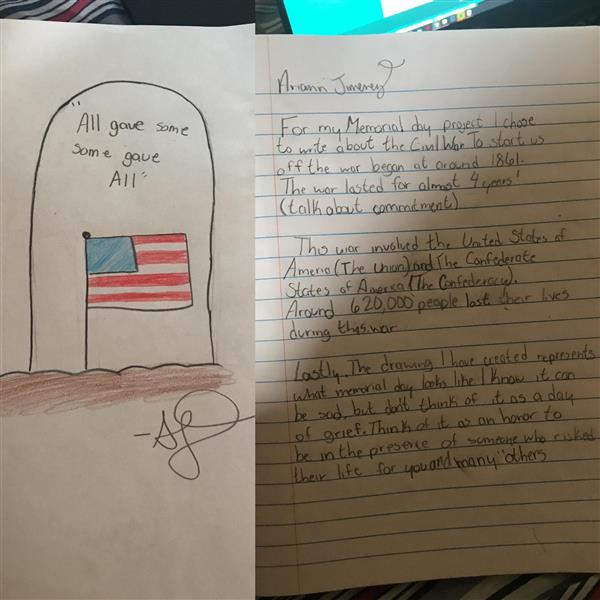 "All gave some
some gave
All"
Ariann Jimenez
For my Memorial day project I chose
to write about the Civil War. To start us
off the war began at around 1861.
The war lasted for almost 4 years!
(talk about commitment)
This war involved the United States of
Ameria (The Union) and The Confederate
States of America (The Confederacy).
Around 620,000 people lost their lives
during this war
Lastly. The drawing I have created represents
what memorial day looks like I know it can
be sad, but don't think of it as a day
of grief. Think of it as an honor to
be in the presence of someone who risked
their life for you and many others